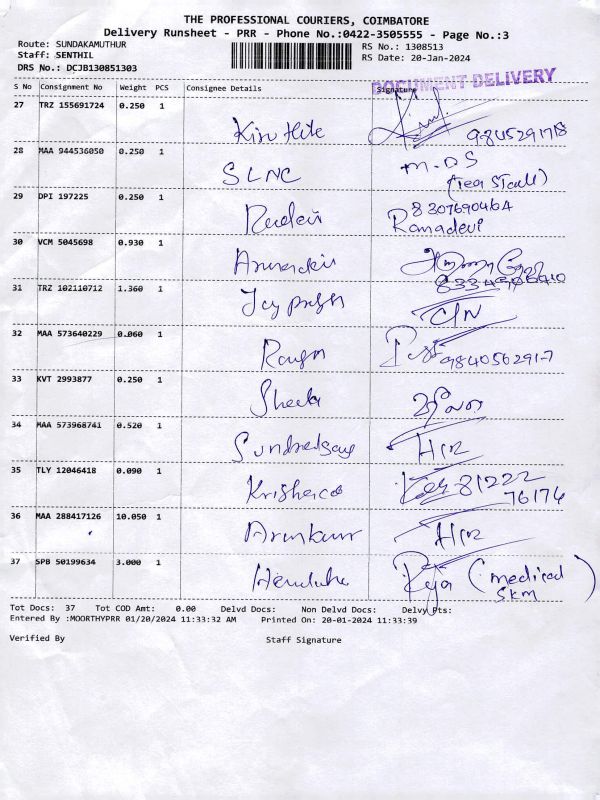 THE PROFESSIONAL COURIERS, COIMBATORE
Delivery Runsheet - PRR - Phone No.:0422-3505555 - Page No.:3
Route: SUNDAKAMUTHUR RS No.: 1308513
Staff: SENTHIL RS Date: 20-Jan-2024
DRS No.: DCJB130851303
DOCUMENT DELIVERY
S No Consignment No Weight PCS Consignee Details Signature
27 TRZ 155691724 0.250 1 9845291718
28 MAA 944536050 0.250 1 SLNC M.DS
(Tea Stall)
29 DPI 197225 0.250 1 Ramadevi
30 VCM 5045698 0.930 1
31 TRZ 102110712 1.360 1
32 MAA 573640229 0.060 1 9840562917
33 KVT 2993877 0.250 1 Sheela
34 MAA 573968741 0.520 1
35 TLY 12046418 0.090 1 81222
76174
36 MAA 288417126 10.050 1
37 SPB 50199634 3.000 1 (medical
SKM
Tot Docs: 37 Tot COD Amt: 0.00 Delvd Docs: Non Delvd Docs: Delvy Pts:
Entered By :MOORTHYPRR 01/20/2024 11:33:32 AM Printed On: 20-01-2024 11:33:39
Verified By Staff Signature